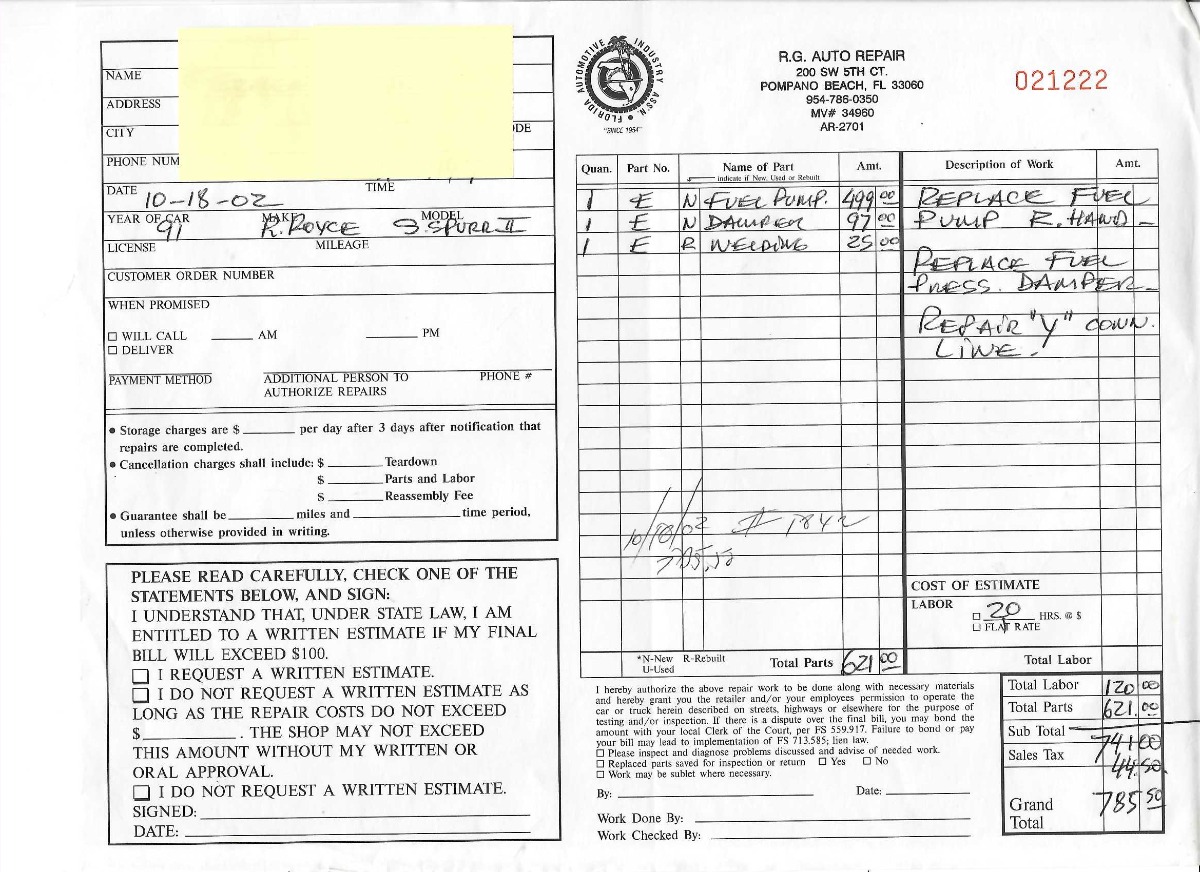 FLORIDA AUTOMOTIVE INDUSTRY ASSN.
"SINCE 1954"
R.G. AUTO REPAIR
200 SW 5TH CT.
POMPANO BEACH, FL 33060
954-786-0350
MV# 34960
AR-2701
021222
NAME
ADDRESS
CITY
DE
PHONE NUM
DATE 10-18-02 TIME
YEAR OF CAR 91 MAKE R. ROYCE MODEL S. SPURR II
LICENSE MILEAGE
CUSTOMER ORDER NUMBER
WHEN PROMISED
☐ WILL CALL ______ AM ______ PM
☐ DELIVER
PAYMENT METHOD ADDITIONAL PERSON TO AUTHORIZE REPAIRS PHONE #
• Storage charges are $ ______ per day after 3 days after notification that
repairs are completed.
• Cancellation charges shall include: $ ______ Teardown
$ ______ Parts and Labor
$ ______ Reassembly Fee
• Guarantee shall be ______ miles and ______ time period,
unless otherwise provided in writing.
PLEASE READ CAREFULLY, CHECK ONE OF THE
STATEMENTS BELOW, AND SIGN:
I UNDERSTAND THAT, UNDER STATE LAW, I AM
ENTITLED TO A WRITTEN ESTIMATE IF MY FINAL
BILL WILL EXCEED $100.
☐ I REQUEST A WRITTEN ESTIMATE.
☐ I DO NOT REQUEST A WRITTEN ESTIMATE AS
LONG AS THE REPAIR COSTS DO NOT EXCEED
$ ______. THE SHOP MAY NOT EXCEED
THIS AMOUNT WITHOUT MY WRITTEN OR
ORAL APPROVAL.
☐ I DO NOT REQUEST A WRITTEN ESTIMATE.
SIGNED:
DATE:
Quan. Part No. Name of Part Amt. Description of Work Amt.
indicate if New, Used or Rebuilt
1 E N FUEL PUMP. 499 00 REPLACE FUEL
1 E N DAMPER 97 00 PUMP R. HAND –
1 E R WELDING 25 00
REPLACE FUEL
PRESS. DAMPER –
REPAIR "Y" CONN.
LINE.
10/18/02 # 1842
COST OF ESTIMATE
LABOR ☐ 20 HRS. @ $
☐ FLAT RATE
*N-New R-Rebuilt
U-Used
Total Parts 621 00
Total Labor
I hereby authorize the above repair work to be done along with necessary materials
and hereby grant you the retailer and/or your employees permission to operate the
car or truck herein described on streets, highways or elsewhere for the purpose of
testing and/or inspection. If there is a dispute over the final bill, you may bond the
amount with your local Clerk of the Court, per FS 559.917. Failure to bond or pay
your bill may lead to implementation of FS 713.585; lien law.
☐ Please inspect and diagnose problems discussed and advise of needed work.
☐ Replaced parts saved for inspection or return ☐ Yes ☐ No
☐ Work may be sublet where necessary.
By: Date:
Work Done By:
Work Checked By:
Total Labor 120 00
Total Parts 621.00
Sub Total 741 00
Sales Tax 44.50
Grand Total 785 50